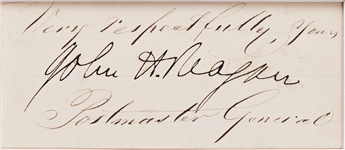 Very respectfully, Yours
John H. Reagan
Postmaster General